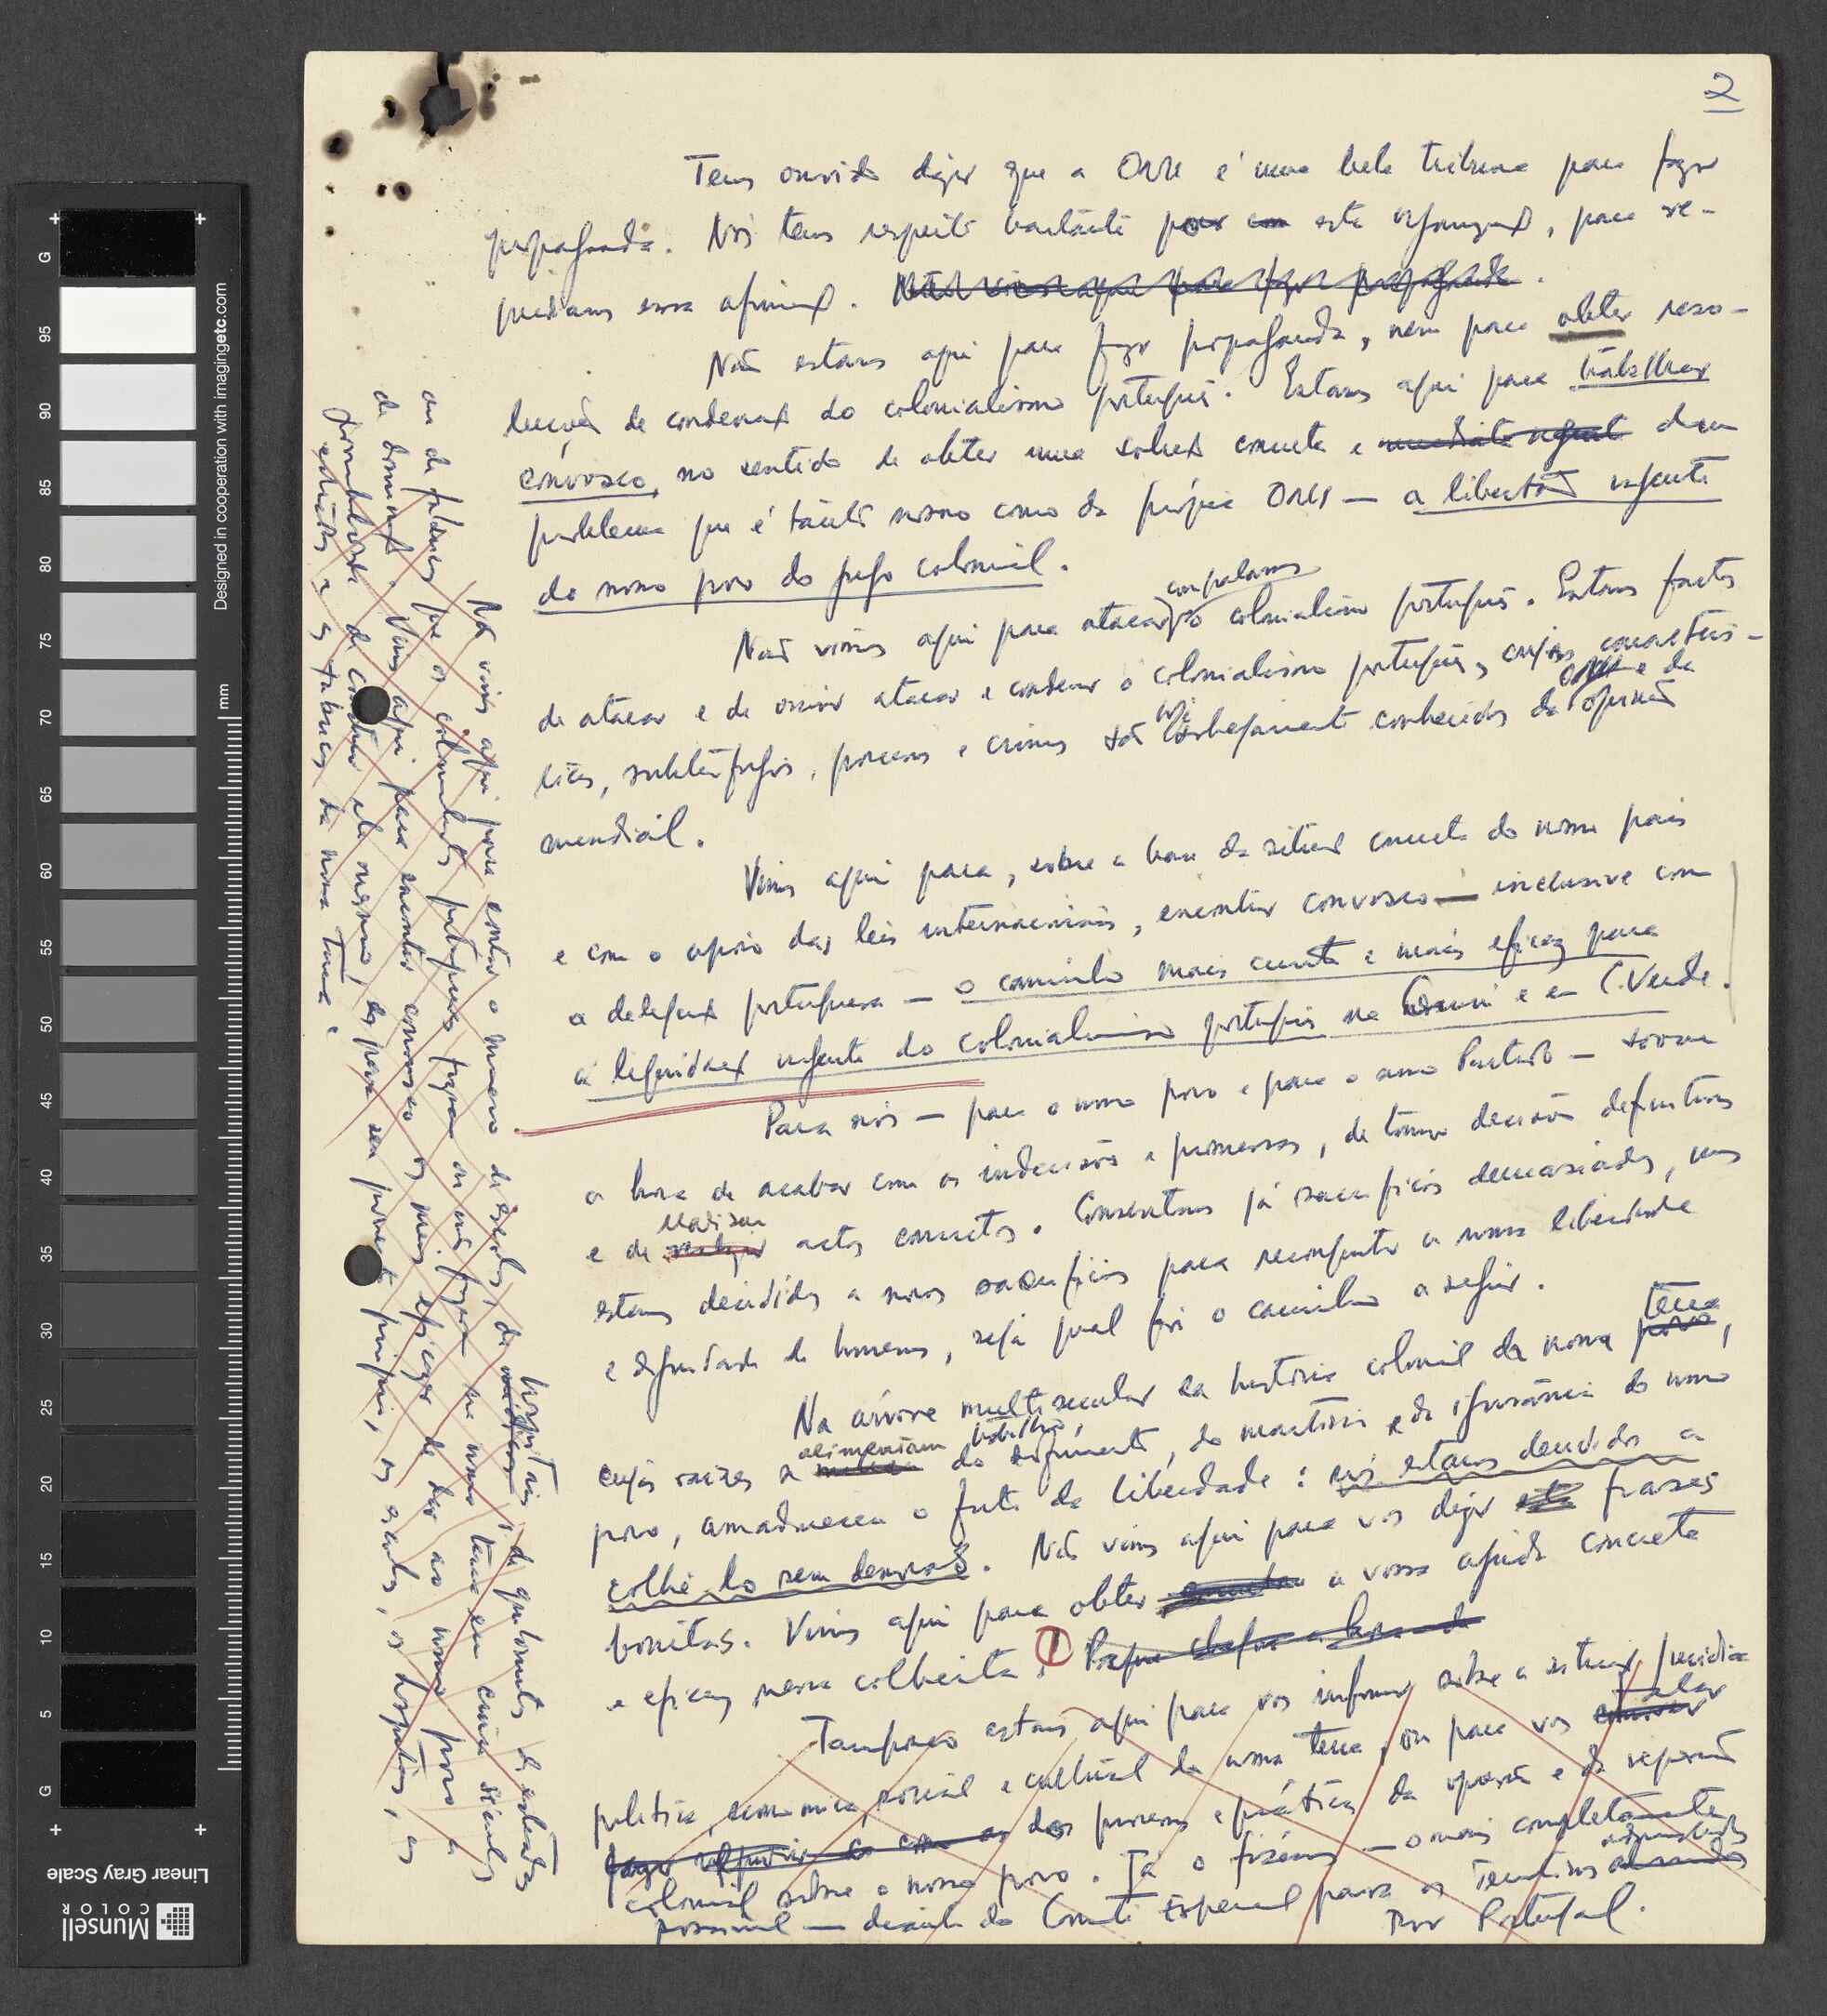 2
Temos ouvido dizer que a ONU é uma bela tribuna para fazer
propaganda. Nós temos respeito bastante por esta organização, para re-
pudiarmos essa afirmação. Não viemos aqui para fazer propaganda.
Não estamos aqui para fazer propaganda, nem para obter reso-
luções de condenação do colonialismo português. Estamos aqui para trabalhar
convosco, no sentido de obter uma solução concreta e imediata urgente dum
problema que é tanto nosso como da própria ONU — a libertação urgente
do nosso povo do jugo colonial.
Não viemos aqui para atacar com palavras o colonialismo português. Estamos fartos
de atacar e de ouvir atacar e condenar o colonialismo português, cujas caracterís-
ticas, subterfúgios, processos e crimes são conhecidos da ONU e da opinião
mundial.
Vimos aqui para, sobre a base da situação concreta do nosso país
e com o apoio das leis internacionais, encontrar convosco — inclusive com
a delegação portuguesa — o caminho mais curto e mais eficaz para
a liquidação urgente do colonialismo português na Guiné e em C. Verde.
Para nós — para o nosso povo e para o nosso Partido — soou
a hora de acabar com as indecisões e promessas, de tomar decisões definitivas
e de realizar actos concretos. Consentimos já sacrifícios demasiados, mas
estamos decididos a novos sacrifícios para reconquistar a nossa liberdade
e dignidade de homens, seja qual for o caminho a seguir.
Na árvore multisecular da história colonial da nossa povo terra,
cujas raízes se alimentam do trabalho, do sofrimento, do martírio e da ignorância do nosso
povo, amadureceu o fruto da liberdade: nós estamos decididos a
colhê-lo sem demora. Não vimos aqui para vos dizer frases
bonitas. Vimos aqui para obter a vossa ajuda concreta
e eficaz nessa colheita. 1 Porque chegou a hora de
Tampouco estamos aqui para vos informar sobre a situação jurídica
política, económica, social e cultural da nossa terra, ou para vos falar
dos processos e práticas da opressão e da repressão
colonial sobre o nosso povo. Já o fizemos — o mais completamente
possível — diante do Comité Especial para os Territórios administrados
por Portugal.
Não vimos aqui para contar o número de escolas, de hospitais, de quilómetros de estradas
ou de palácios que os colonialistas portugueses fizeram ou não fizeram na nossa terra em cinco séculos
de dominação. Vimos aqui para encontrar convosco os meios eficazes de dar ao nosso povo a
possibilidade de construir ele mesmo, e para seu proveito próprio, as escolas, os hospitais, as
estradas e as fábricas da nossa terra.